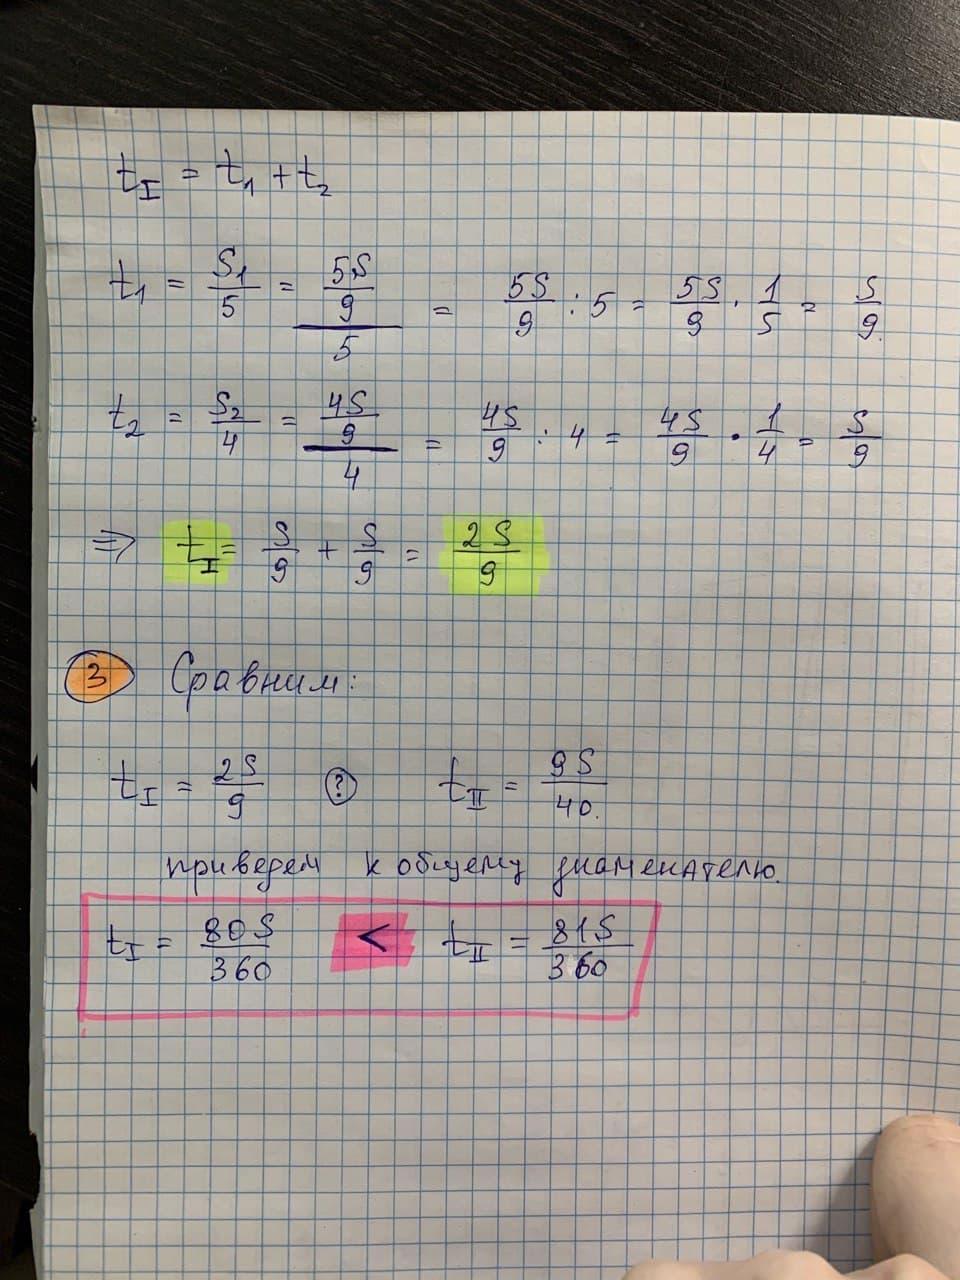 t_I = t₁ + t₂
t₁ = S₁/5 = (5S/9)/5 = 5S/9 : 5 = 5S/9 · 1/5 = S/9.
t₂ = S₂/4 = (4S/9)/4 = 4S/9 : 4 = 4S/9 · 1/4 = S/9
⇒ t_I = S/9 + S/9 = 2S/9
3 Сравним:
t_I = 2S/9 ? t_II = 9S/40.
приведем к общему знаменателю.
t_I = 80S/360 < t_II = 81S/360